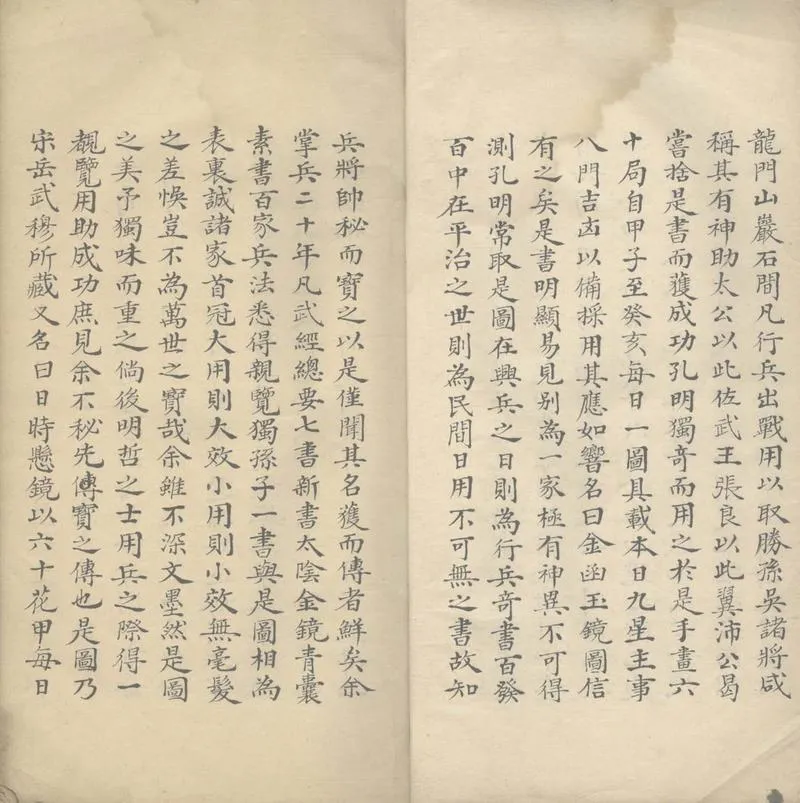 龍門山巖石間凡行兵出戰用以取勝孫吳諸將咸
稱其有神助太公以此佐武王張良以此翼沛公曷
嘗捨是書而獲成功孔明獨奇而用之於是手畫六
十局自甲子至癸亥每日一圖具載本日九星主事
八門吉凶以備採用其應如響名曰金函玉鏡圖信
有之矣是書明顯易見別為一家極有神異不可得
測孔明常取是圖在興兵之日則為行兵奇書百發
百中在平治之世則為民間日用不可無之書故知
兵將帥秘而寶之以是僅聞其名獲而傳者鮮矣余
掌兵二十年凡武經總要七書新書太陰金鏡青囊
素書百家兵法悉得親覽獨孫子一書與是圖相為
表裏誠諸家首冠大用則大效小用則小效無毫髮
之差悞豈不為萬世之寶哉余雖不深文墨然是圖
之美予獨味而重之倘後明哲之士用兵之際得一
覩覽用助成功庶見余不秘先傳寶之傳也是圖乃
宋岳武穆所藏又名曰日時懸鏡以六十花甲每日